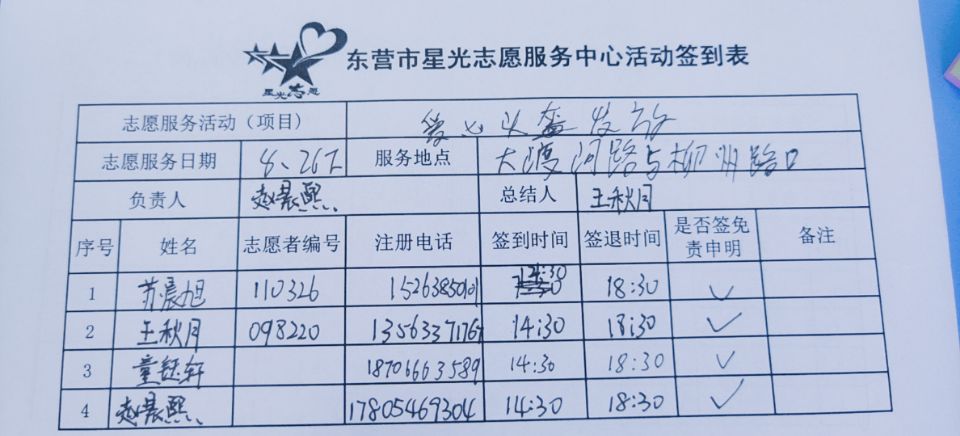 星光志愿
东营市星光志愿服务中心活动签到表
志愿服务活动（项目） 爱心头盔发放
志愿服务日期 4、26下 服务地点 大渡河路与柳州路口
负责人 赵晨熙 总结人 王秋月
序号 姓名 志愿者编号 注册电话 签到时间 签退时间 是否签免责申明 备注
1 苏晨旭 110326 15263850101 14:30 18:30 ✓
2 王秋月 098220 13563371767 14:30 18:30 ✓
3 童钰轩 18706663589 14:30 18:30 ✓
4 赵晨熙 17805469304 14:30 18:30 ✓